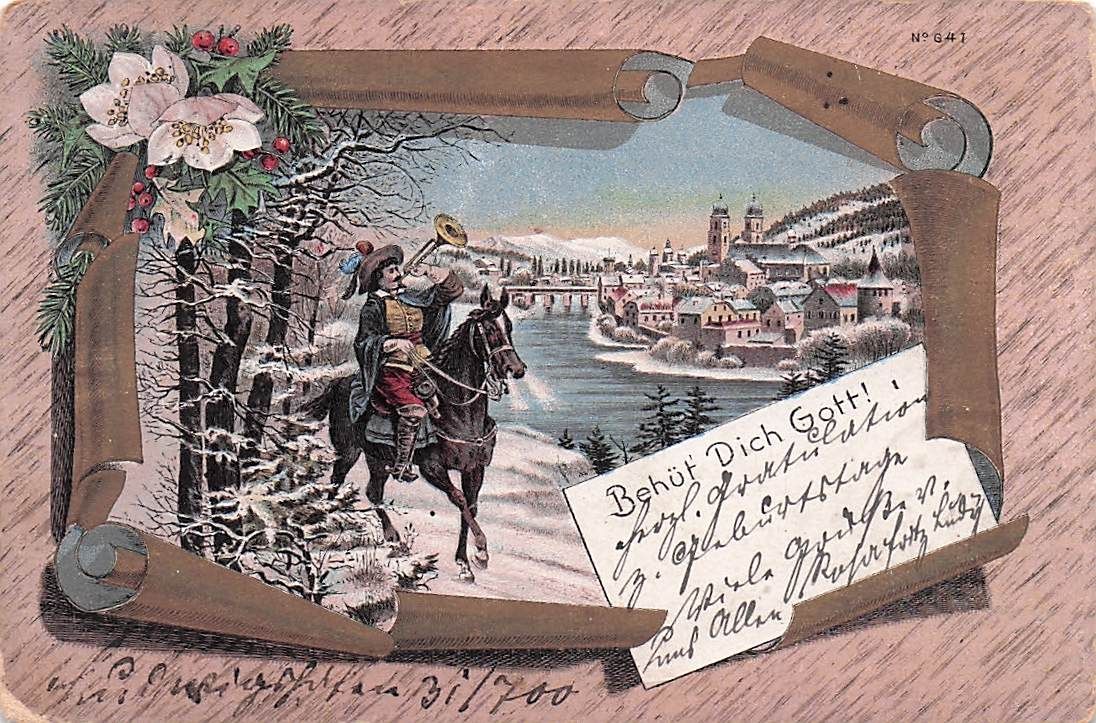 Nº 641
Behüt' Dich Gott!
herzl. Gratulation
z. Geburtstage
Viele Grüße v.
uns Allen
Ludwigshafen 31/7 00